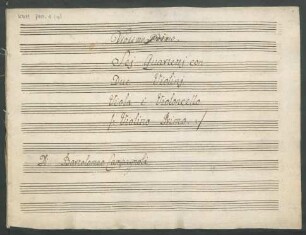 Violino Primo
Sei Quartetti con
Due Violini
Viola e Violoncello
Violino Primo
D. Bartolomeo Campagnoli